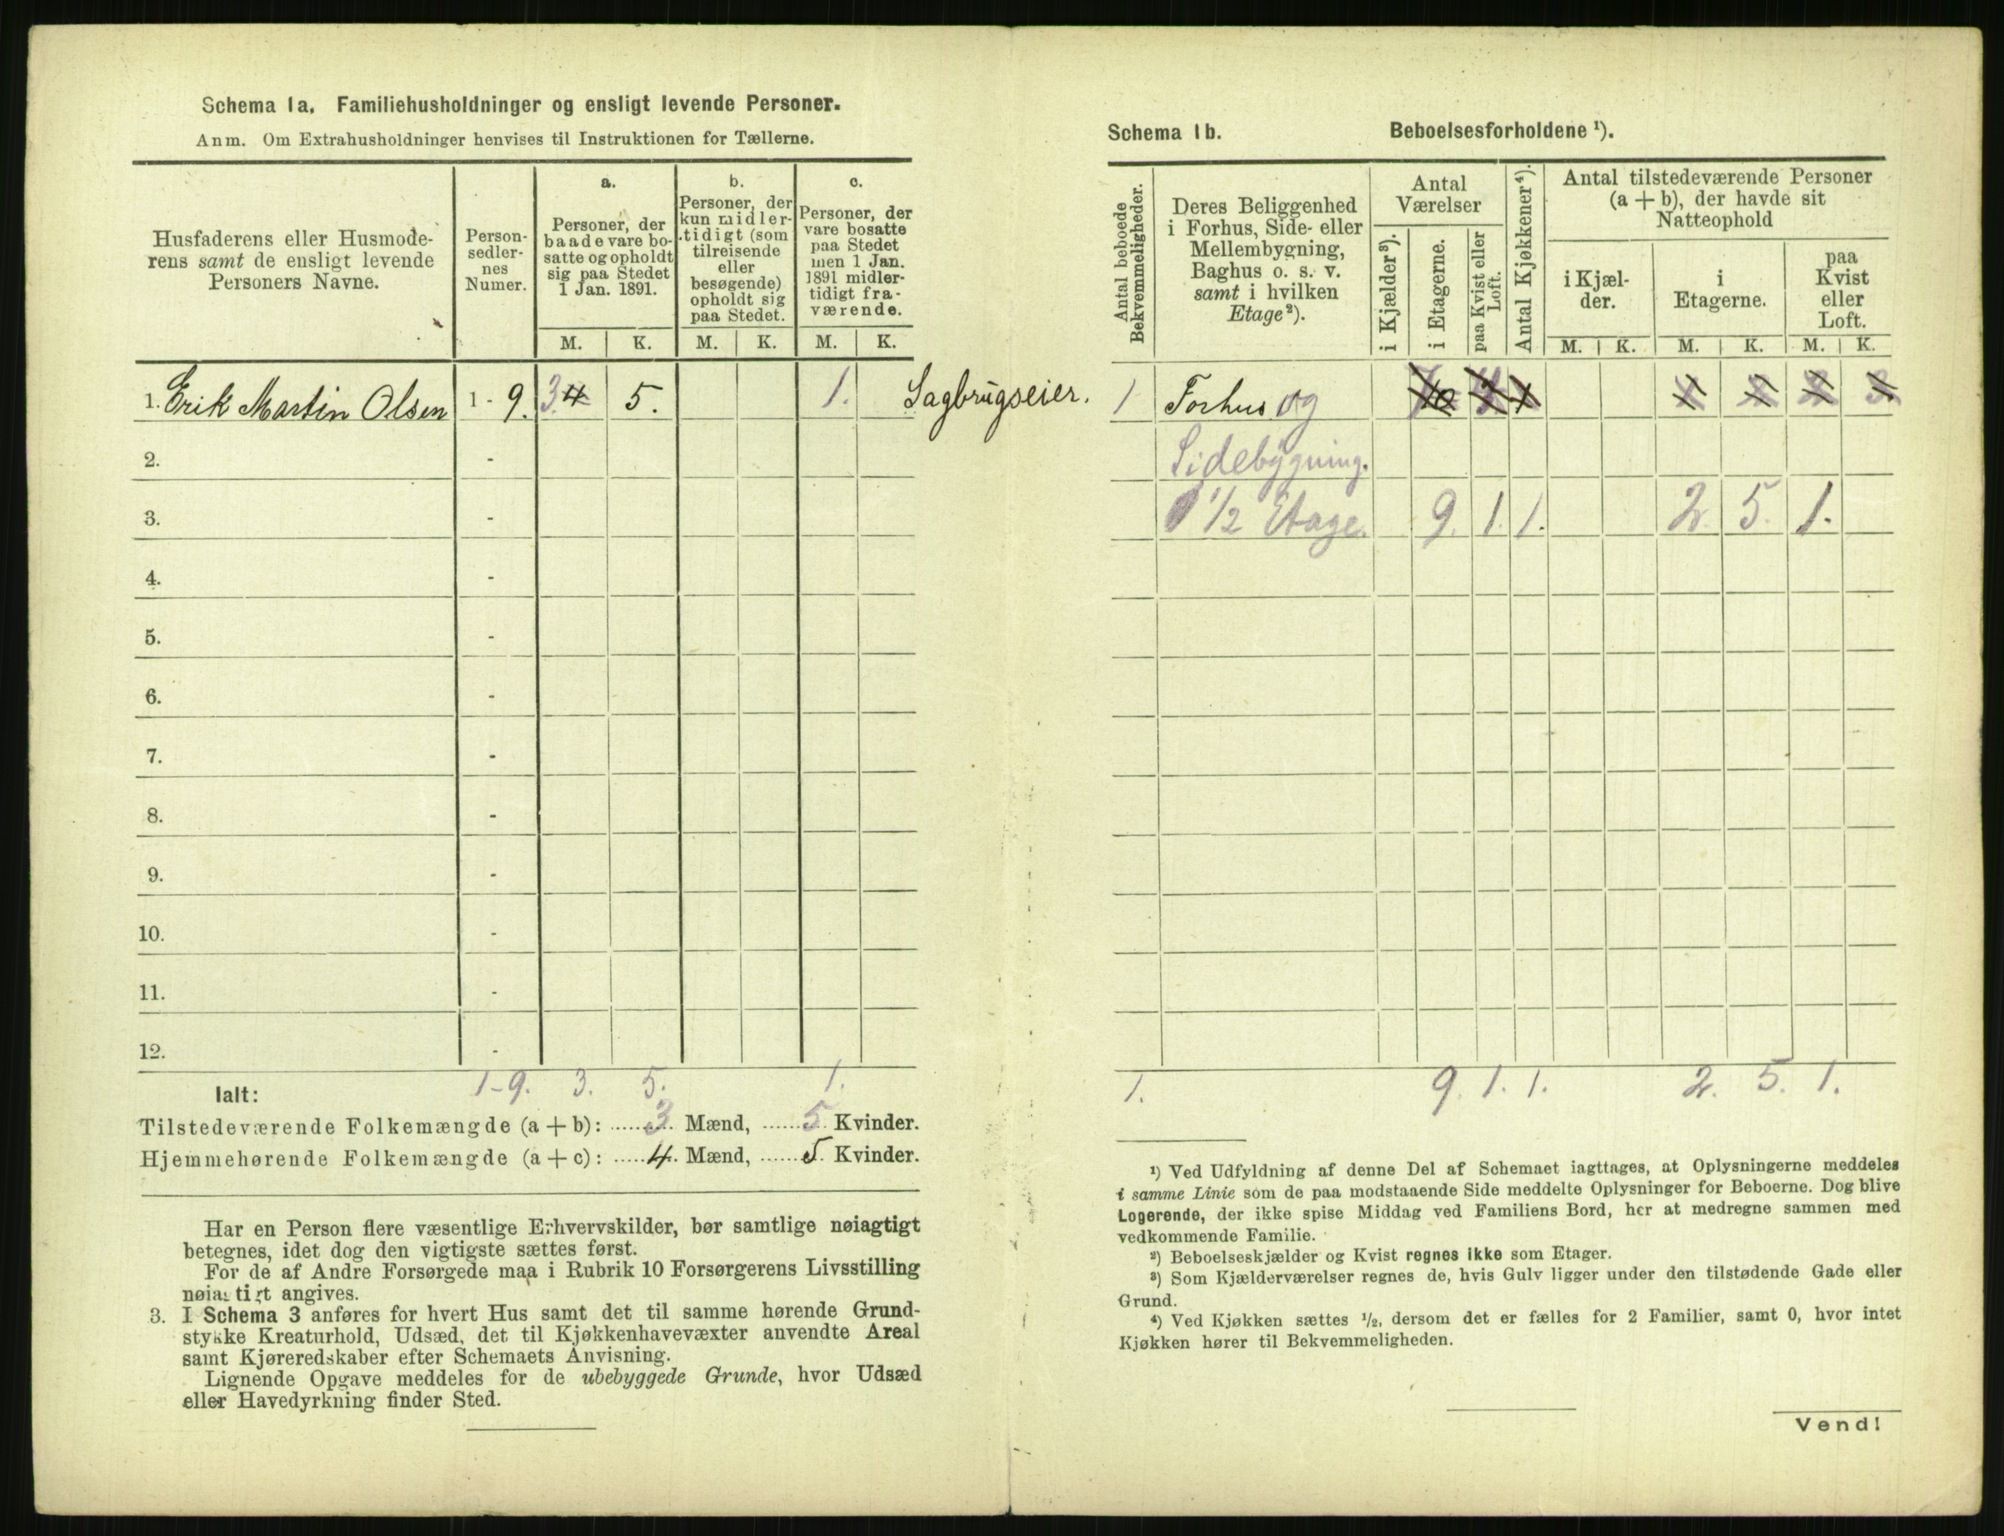 Schema 1a. Familiehusholdninger og ensligt levende Personer.
Anm. Om Extrahusholdninger henvises til Instruktionen for Tællerne.
Husfaderens eller Husmode-
rens samt de ensligt levende
Personers Navne.
Person-
sedler-
nes
Numer.
a.
Personer, der
baade vare bo-
satte og opholdt
sig paa Stedet
1 Jan. 1891.
b.
Personer, der
kun midler-
tidigt (som
tilreisende
eller
besøgende)
opholdt sig
paa Stedet.
c.
Personer, der
vare bosatte
paa Stedet
men 1 Jan.
1891 midler-
tidigt fra-
værende.
M. K. M. K. M. K.
1. Erik Martin Olsen 1 - 9. 3. 4 5. 1. Sagbrugseier.
2. -
3. -
4. -
5. -
6. -
7. -
8. -
9. -
10. -
11. -
12. -
Ialt: 1-9. 3. 5. 1.
Tilstedeværende Folkemængde (a + b): 3 Mænd, 5 Kvinder.
Hjemmehørende Folkemængde (a + c): 4. Mænd, 5 Kvinder.
Har en Person flere væsentlige Erhvervskilder, bør samtlige nøiagtigt
betegnes, idet dog den vigtigste sættes først.
For de af Andre Forsørgede maa i Rubrik 10 Forsørgerens Livsstilling
nøiagtigt angives.
3. I Schema 3 anføres for hvert Hus samt det til samme hørende Grund-
stykke Kreaturhold, Udsæd, det til Kjøkkenhavevæxter anvendte Areal
samt Kjøreredskaber efter Schemaets Anvisning.
Lignende Opgave meddeles for de ubebyggede Grunde, hvor Udsæd
eller Havedyrkning finder Sted.
Schema 1b. Beboelsesforholdene ¹).
Antal beboede
Bekvemmeligheder.
Deres Beliggenhed
i Forhus, Side- eller
Mellembygning,
Baghus o. s. v.
samt i hvilken
Etage²).
Antal
Værelser
i Kjælder³).
i Etagerne.
paa Kvist eller
Loft.
Antal Kjøkkener⁴).
Antal tilstedeværende Personer
(a + b), der havde sit
Natteophold
i Kjæl-
der.
i
Etagerne.
paa
Kvist
eller
Loft.
M. K. M. K. M. K.
1 Forhus og
Sidebygning.
1/2 Etage. 9. 1. 1. 2. 5. 1.
1. 9. 1. 1. 2. 5. 1.
¹) Ved Udfyldning af denne Del af Schemaet iagttages, at Oplysningerne meddeles
i samme Linie som de paa modstaaende Side meddelte Oplysninger for Beboerne. Dog blive
Logerende, der ikke spise Middag ved Familiens Bord, her at medregne sammen med
vedkommende Familie.
²) Beboelseskjælder og Kvist regnes ikke som Etager.
³) Som Kjælderværelser regnes de, hvis Gulv ligger under den tilstødende Gade eller
Grund.
⁴) Ved Kjøkken sættes ¹/₂, dersom det er fælles for 2 Familier, samt 0, hvor intet
Kjøkken hører til Bekvemmeligheden.
Vend!